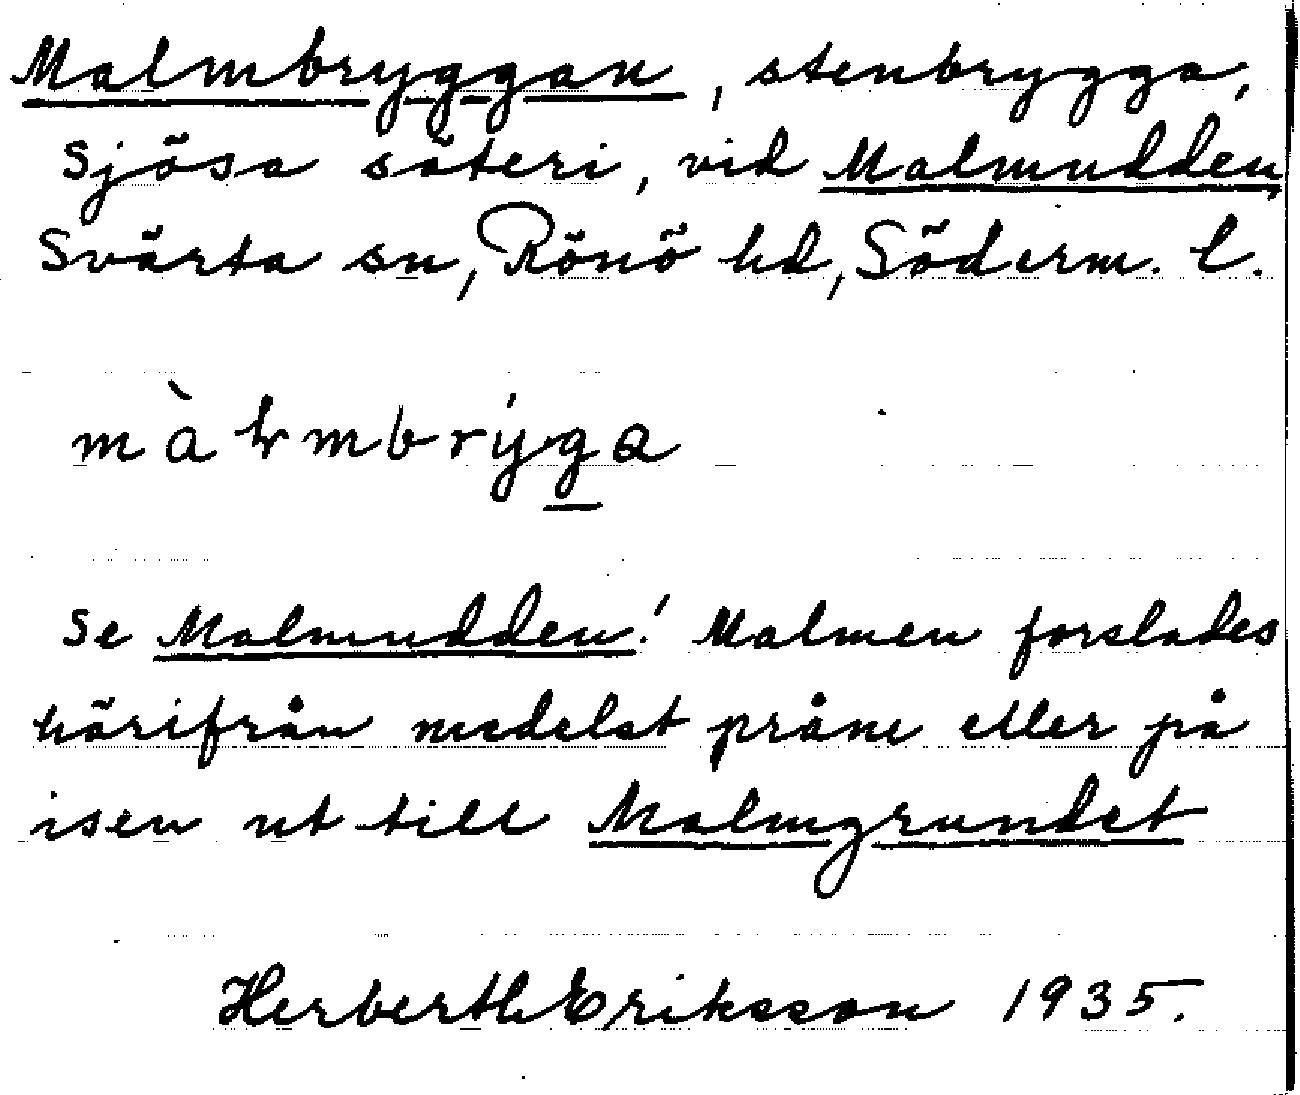 Malmbryggan, stenbrygga,
Sjösa säteri, vid Malmudden,
Svärta sn, Rönö hd, Söderm. l.
màlmbrýga
Se Malmudden! Malmen forslades
härifrån medelst pråm eller på
isen ut till Malmgrundet
Herberth Eriksson 1935.